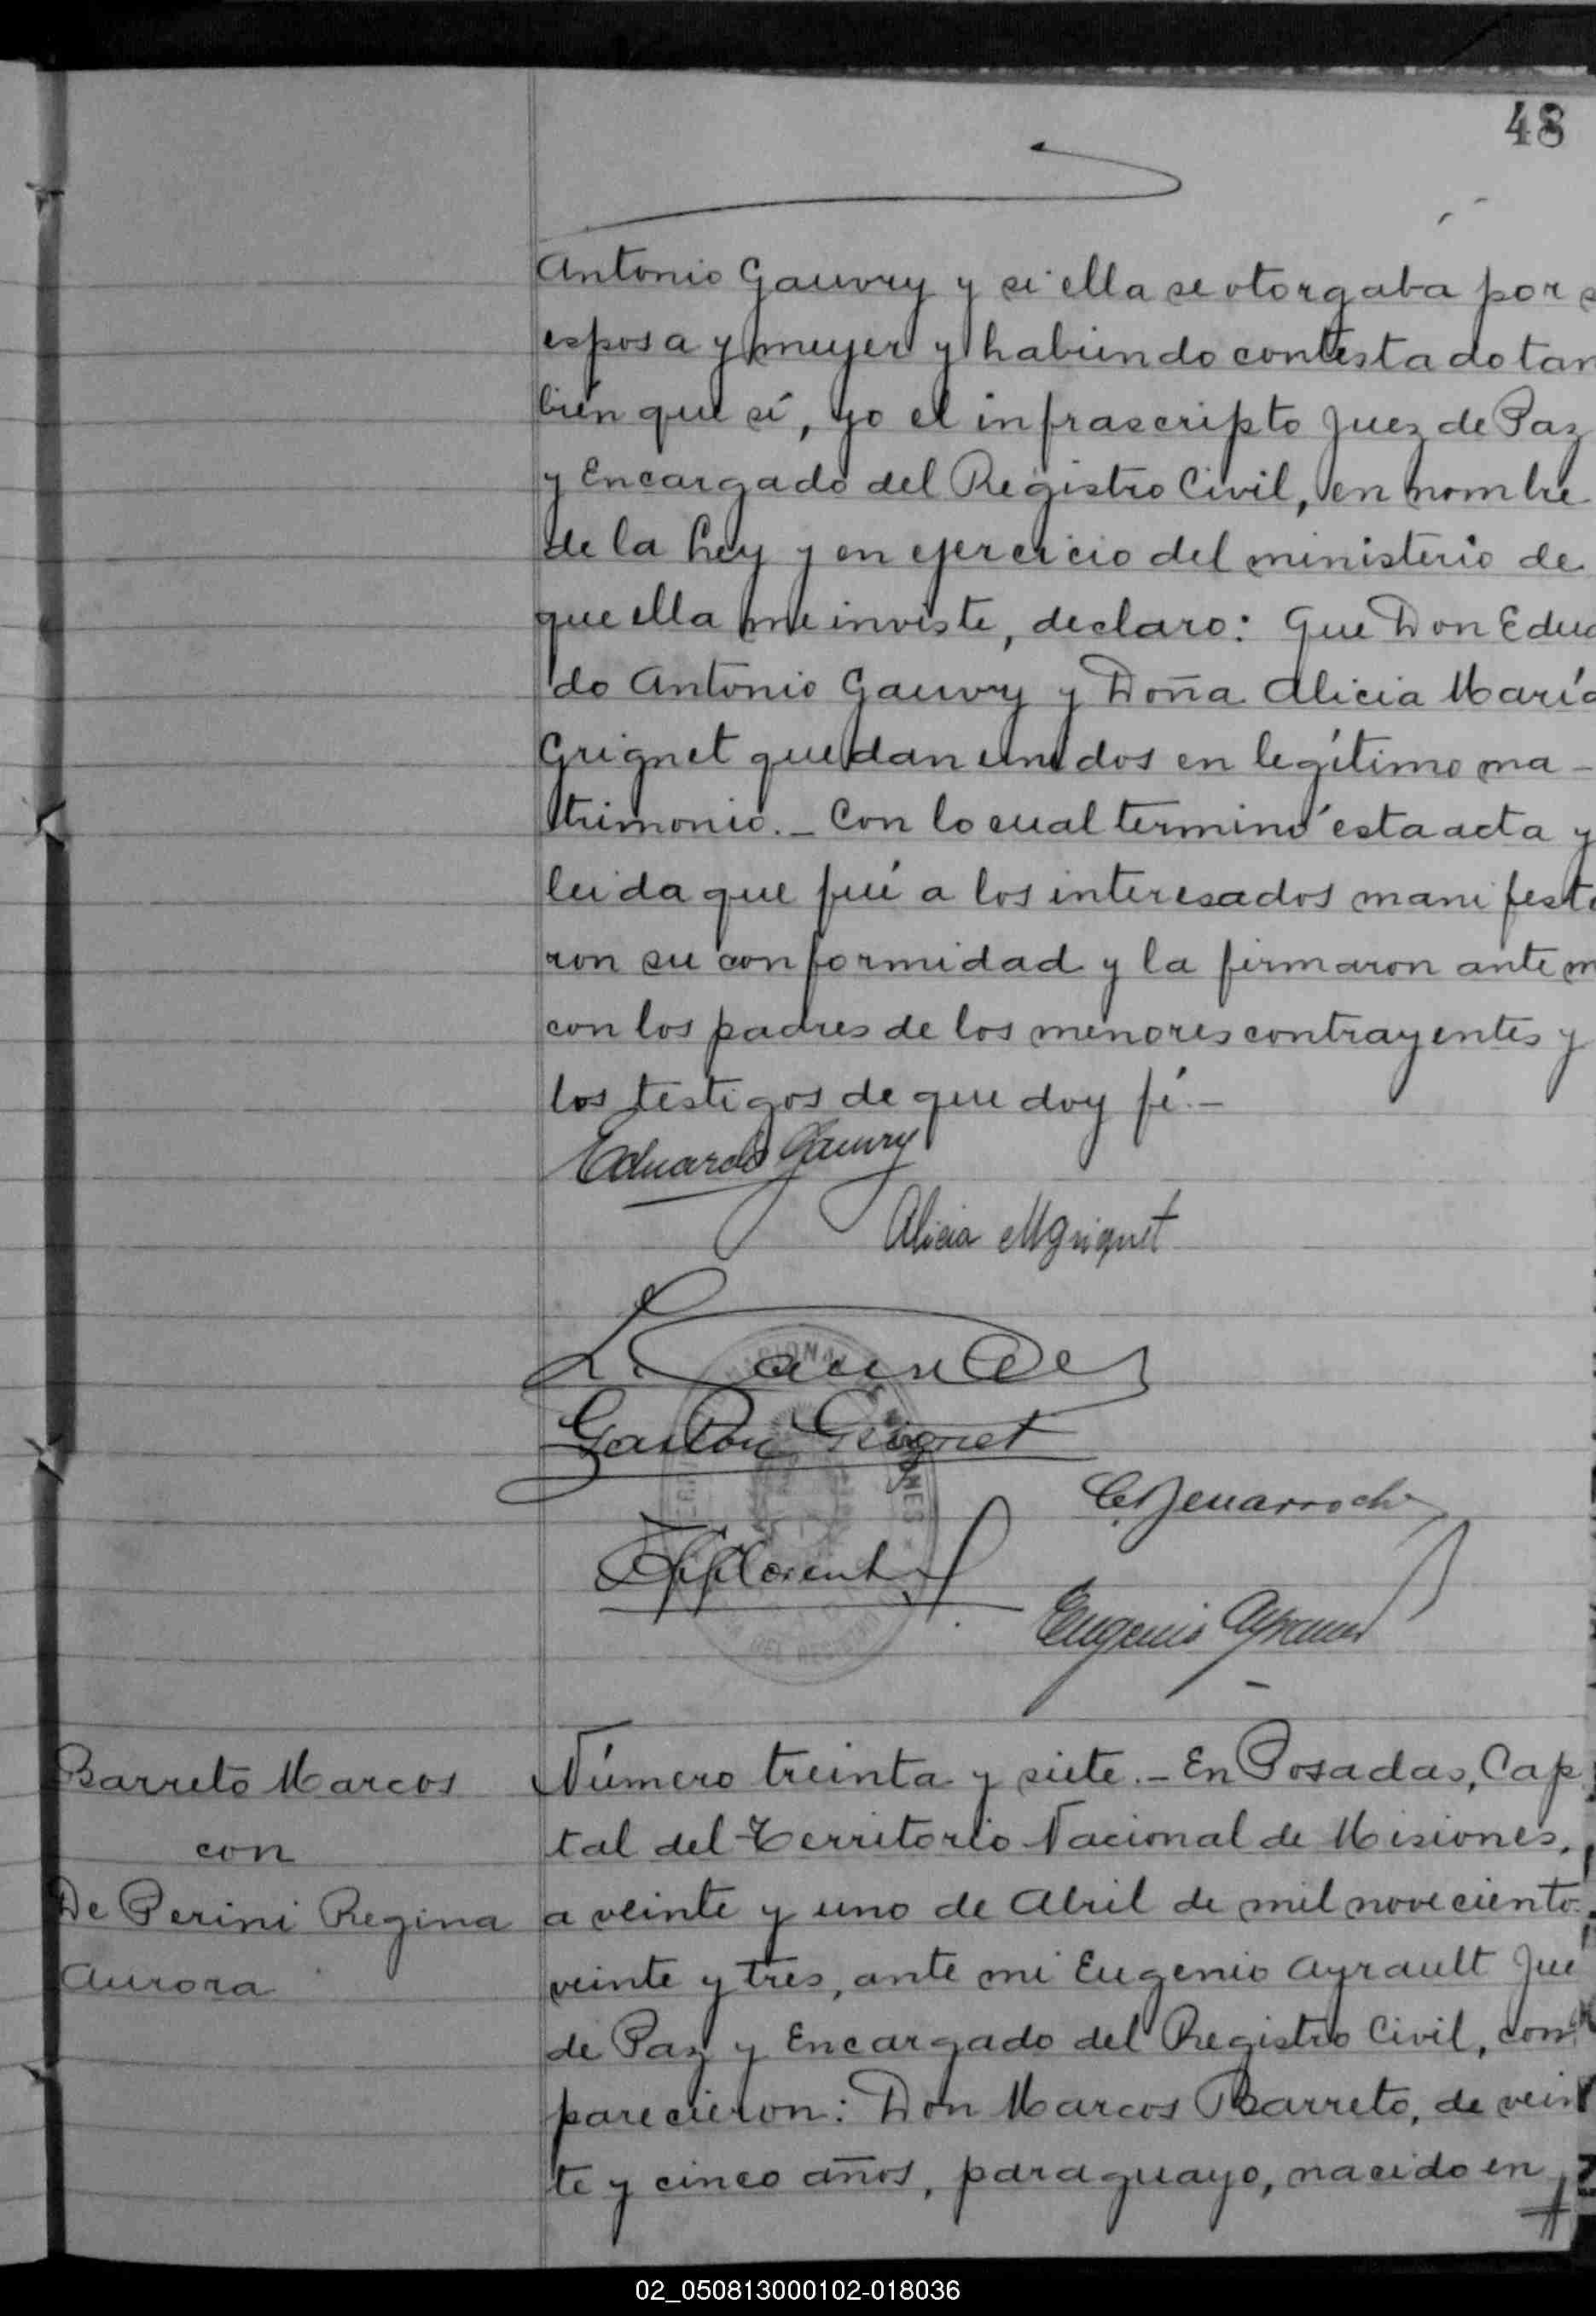 48
Antonio Gauvry y si ella se otorgaba por s
esposa y muyer y habiendo contestado tam
bién que sí, yo el infrascripto Juez de Paz
y Encargado del Registro Civil, en nombre
de la Ley y en ejercicio del ministerio de
que ella me inviste, declaro: Que Don Edua
do Antonio Gauvry y Doña Alicia María
Grignet quedan unidos en legítimo ma-
trimonio.- Con lo cual terminó esta acta y
leida que fué a los interesados manifesta
ron su conformidad y la firmaron ante m
con los padres de los menores contrayentes y
los testigos de que doy fé.-
Eduardo Gauvry
Alicia M Grignet
Gaston Grignet
C. Benarroch
Eugenio Ayrault
Barreto Marcos
con
De Perini Regina
Aurora
Número treinta y siete.- En Posadas, Cap
tal del Territorio Nacional de Misiones,
a veinte y uno de Abril de mil noveciento
veinte y tres, ante mi Eugenio Ayrault Jue
de Paz y Encargado del Registro Civil, com
parecieron: Don Marcos Barreto, de vein
te y cinco años, paraguayo, nacido en
02_050813000102-018036